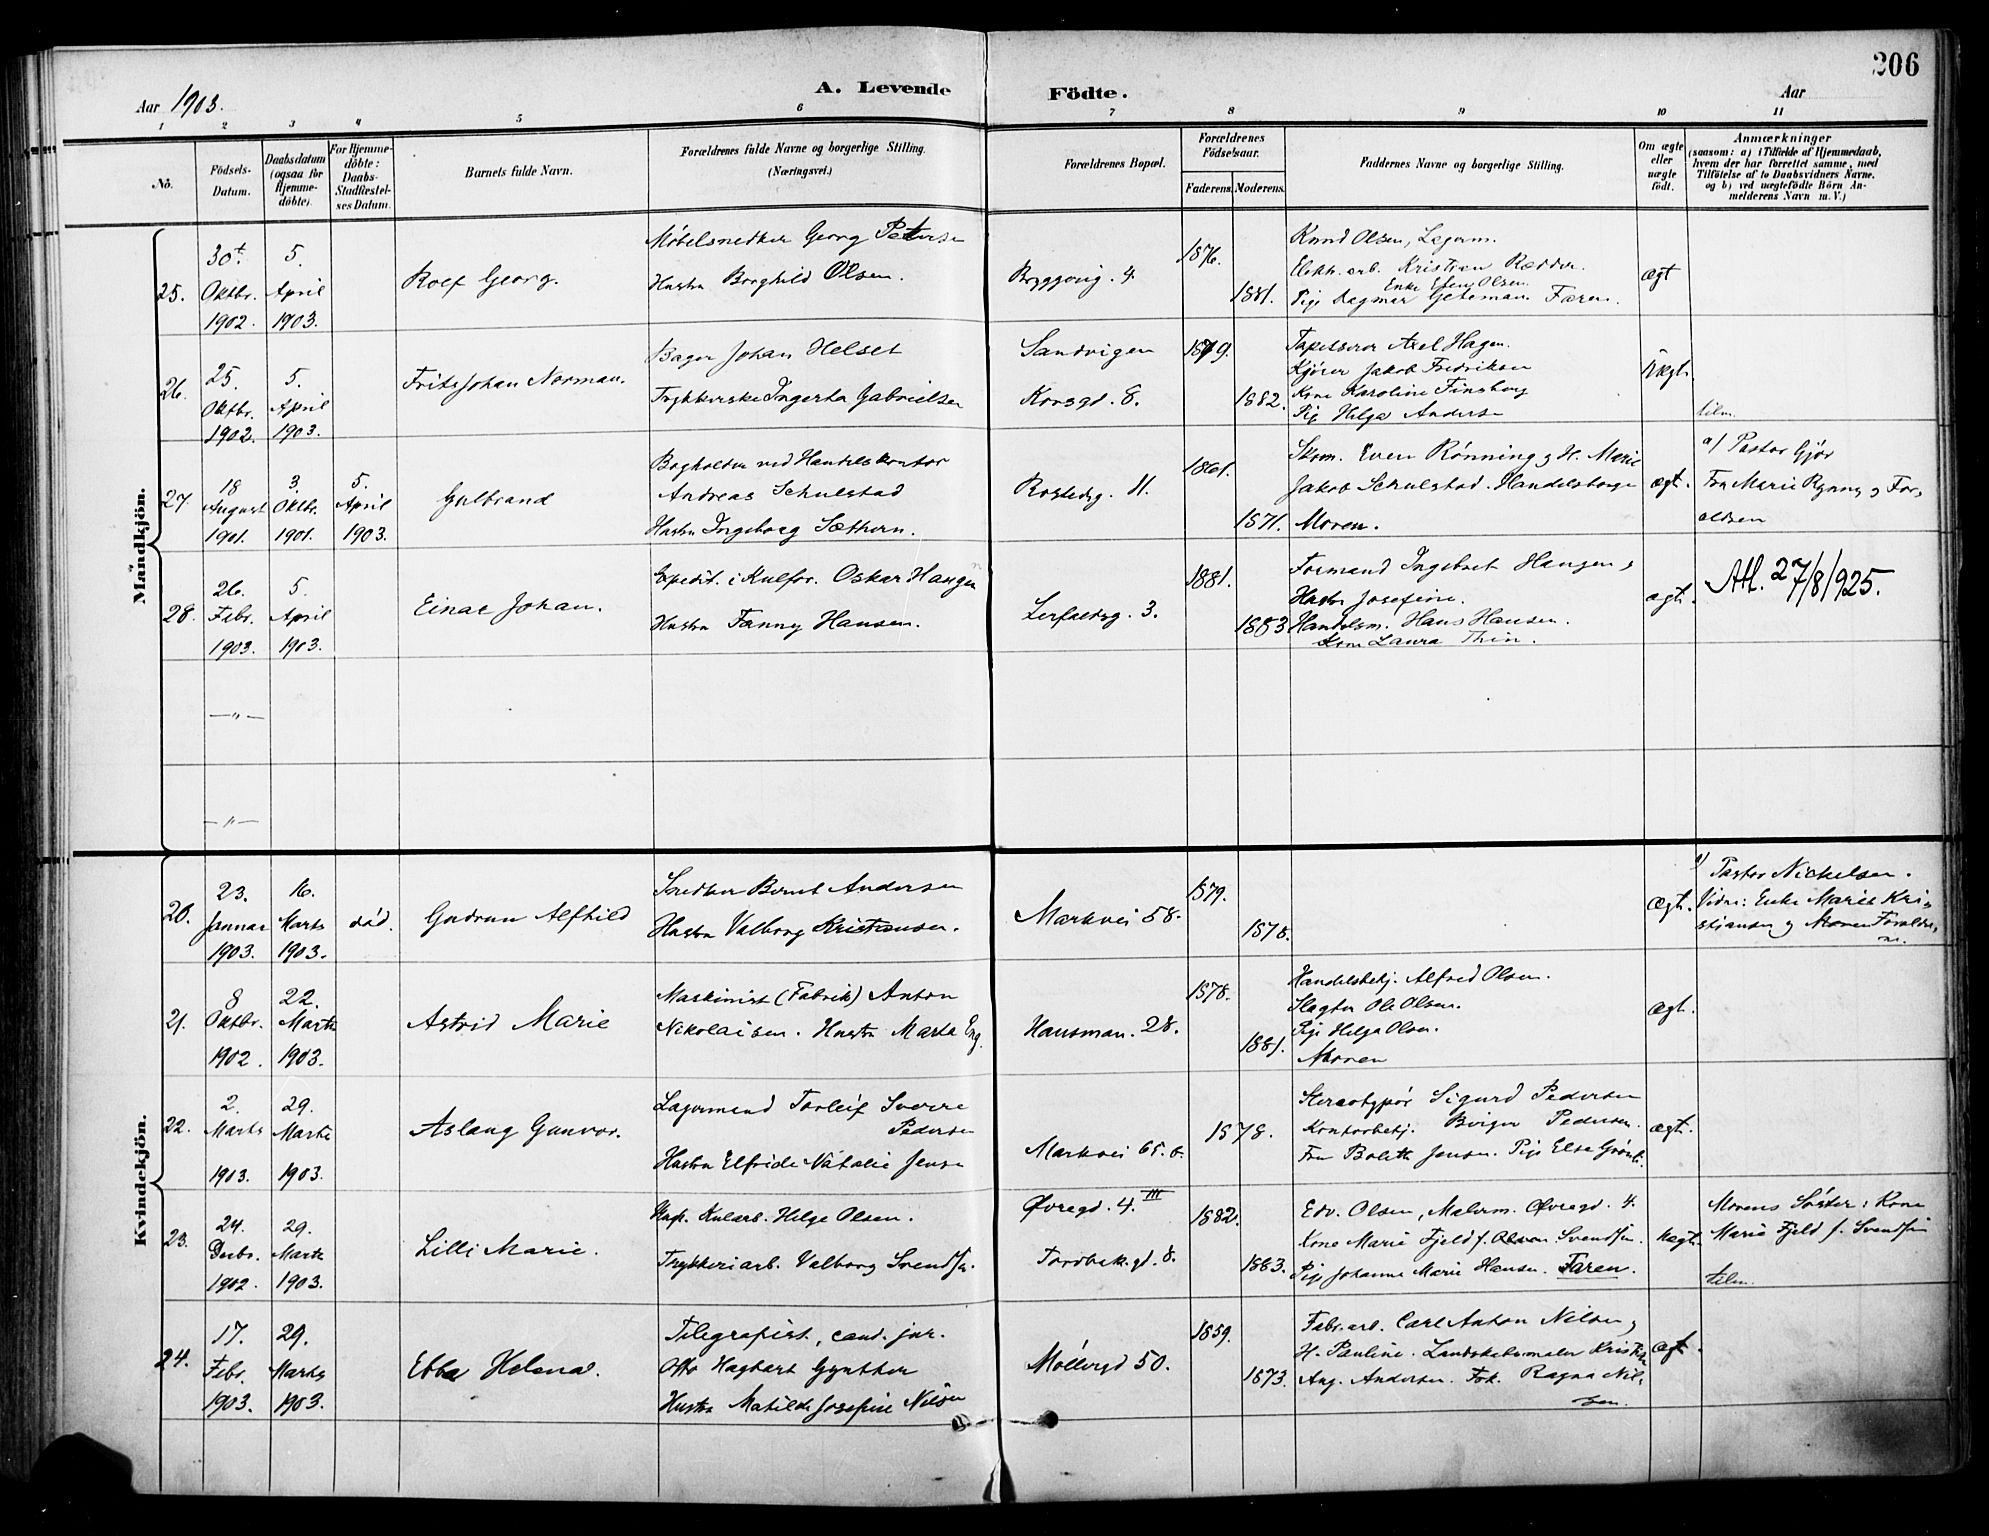 206
Aar 1903.
A. Levende Födte.
Aar
1 2 3 4 5 6 7 8 9 10 11
No.
Födsels-Datum.
Daabsdatum (ogsaa for Hjemme-döbte).
For Hjemme-döbte: Daabs-Stadfæstel-ses Datum.
Barnets fulde Navn.
Forældrenes fulde Navne og borgerlige Stilling. (Næringsvei.)
Forældrenes Bopæl.
Forældrenes Födselsaar.
Faderens. Moderens.
Faddernes Navne og borgerlige Stilling.
Om ægte eller uægte födt.
Anmærkninger
(saasom: a) i Tilfælde af Hjemmedaab,
hvem der har forrettet samme, med
Tilföielse af to Daabsvidners Navne.
og b) ved uægtefödte Börn An-
melderens Navn m. V.)
Mandkjön.
25.
30te Oktbr. 1902.
5. April 1903.
Rolf Georg.
Møbelsnedker Georg Petersen
Hustru Borghild Olsen.
Bryggerig. 4.
1876.
1881.
Knud Olsen, Lagerm.
Elektr. arb. Kristian Rædder.
Enke Ellen Olsen
Pige Dagmar Faren.
ægt
26.
25. Oktbr. 1902.
5. April 1903.
Frits Johan Norman.
Bager Johan Helset
Trykkerske Ingerta Gabrielsen
Sandvigen
Korsgd. 8.
1879.
1882.
Tapetserer Axel Hagen.
Kjører Jakob Fredriksen
Kone Karoline Finsberg
Pige Helga Andersen
Uægt.
tilm.
27.
18 August 1901.
3 Oktbr. 1901.
5. April 1903.
Gulbrand
Bogholder ved Handelskontor
Andreas Schulstad
Hustru Ingeborg Sæthern.
Rostedsg. 11.
1861.
1871.
Skom. Even Rønning og H. Marie
Jakob Schulstad. Handelsborger
Moren.
ægt.
a/ Pastor Gjør
Fru Marie Rynning og For-
ældren
28.
26. Febr. 1903.
5. April 1903.
Einar Johan.
Expedit. i Kulfor. Oskar Haugen
Hustru Fanny Hansen.
Lerfaldsg. 3.
1881.
1883
Formand Ingebret Haugen og
Hustru Josefine.
Handelsm. Hans Hansen.
Kone Laura Thin.
ægt.
Att. 27/8/1925.
—"—
—"—
Kvindekjön.
20.
23. Januar 1903.
16. Marts 1903.
død.
Gudrun Alfhild
Snedker Bernt Andersen
Hustru Valborg Kristiansen.
Markvei 58.
1879.
1878.
Ægt.
a/ Pastor Nickelsen.
Vidne: Enke Marie Kri-
stiansen og Moren Forældre-
ne.
21.
8 Oktbr. 1902.
22. Marts 1903.
Astrid Marie
Maskinist (Fabrik) Anton
Nikolaisen. Hustru Marta Eng.
Hausman. 28.
1878.
1881.
Handelsbetj. Alfred Olsen.
Slagter Ole Olsen.
Pige Helga Olsen.
Moren
ægt.
22.
2. Marts 1903.
29. Marts 1903.
Aslaug Gunvor.
Lagermand Torleif Sverre
Pedersen
Hustru Elfride Natalie Jensen
Markvei 65. b.
1878.
Stereotypør Sigurd Pedersen
Kontorbetj. Birger Pedersen.
Fru Bolette Jensen. Pige Else
ægt.
23.
24. Decbr. 1902.
29. Marts 1903.
Lilli Marie.
Ugift. Kularb. Helge Olsen.
Trykkeriarb. Valborg Svendsen.
Øvregd. 4. III
Tordbak.gd. 8.
1882.
1883.
Edv. Olsen, Malerm. Øvregd. 4.
Kone Marie Fjeld f. Svendsen.
Pige Johanne Marie Hansen. Faren.
Uægt.
Morens Søster: Kone
Marie Fjeld f. Svendsen
tilm.
24.
17. Febr. 1903.
29. Marts 1903.
Ebba Helena.
Telegrafist, cand. jur.
Otto Hagbart Gynther
Hustru Matilde Josefine Nilsen
Møllergd 50.
1859.
1873.
Fabr. arb. Carl Anton Nilsen og
H. Pauline. Landskabsmaler Kristian
Aug. Andersen. Frk. Ragna Nil-
sen.
ægt.